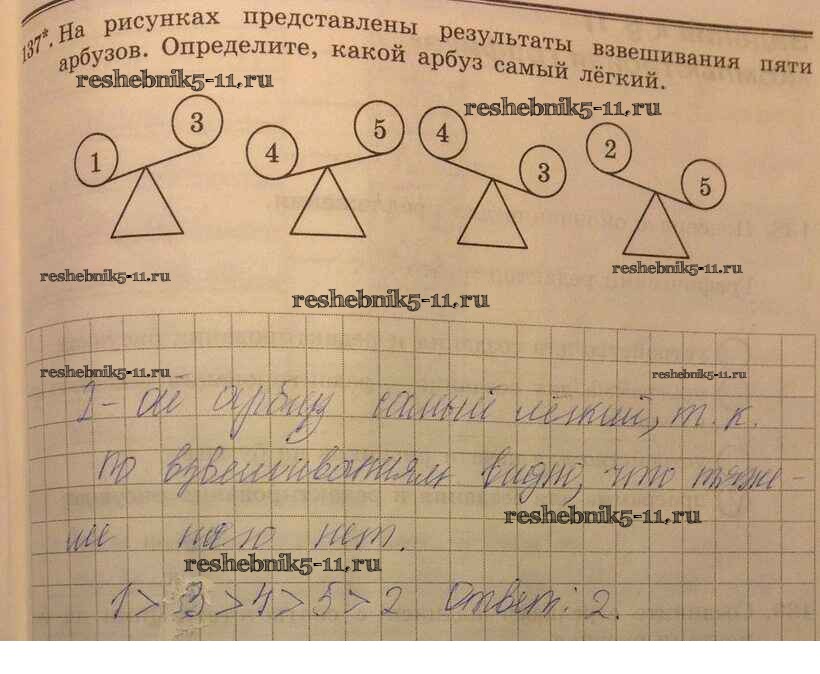 137*. На рисунках представлены результаты взвешивания пяти
арбузов. Определите, какой арбуз самый лёгкий.
reshebnik5-11.ru
reshebnik5-11.ru
1 3 4 5 4 3 2 5
reshebnik5-11.ru
reshebnik5-11.ru
reshebnik5-11.ru
reshebnik5-11.ru
reshebnik5-11.ru
2-ой арбуз самый лёгкий, т.к.
по взвешиваниям видно, что
reshebnik5-11.ru
него нет.
reshebnik5-11.ru
1 > 3 > 4 > 5 > 2 Ответ: 2.